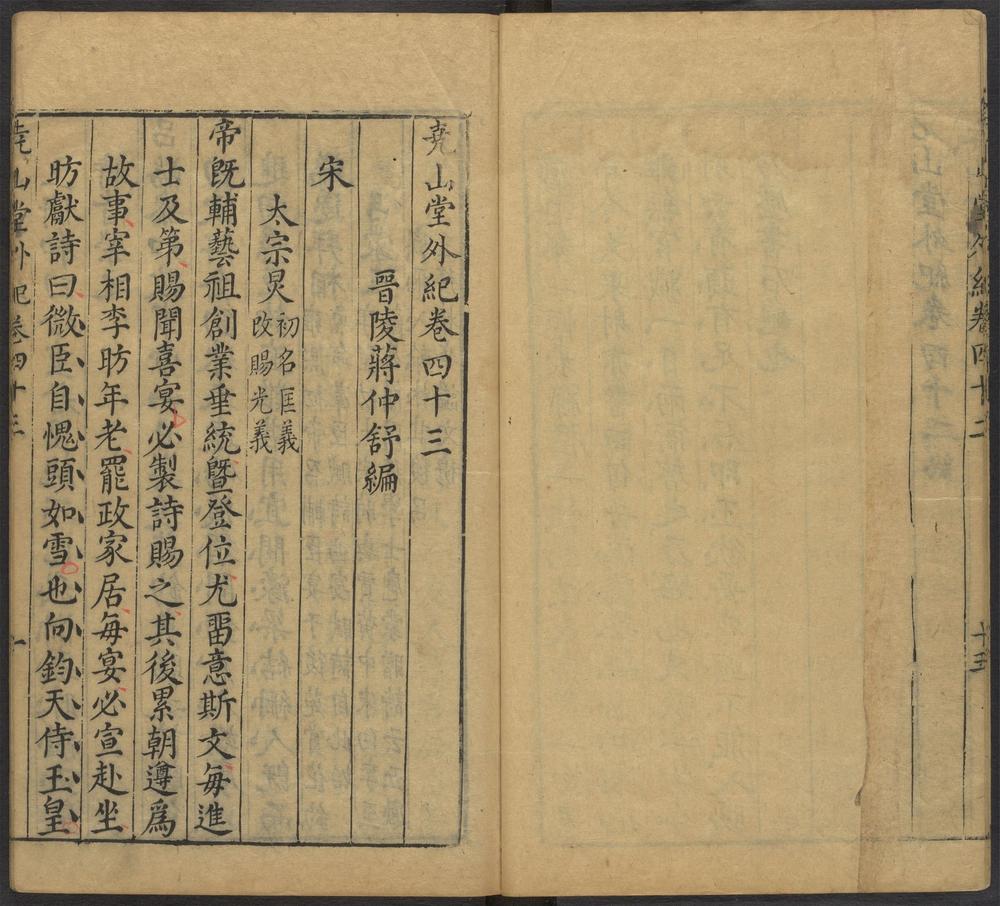 堯山堂外紀卷四十二
十五
堯山堂外紀卷四十三
晉陵蔣仲舒編
宋
太宗炅初名匡義改賜光義
帝旣輔藝祖創業垂統曁登位尤畱意斯文每進
士及第賜聞喜宴必製詩賜之其後累朝遵爲
故事宰相李昉年老罷政家居每宴必宣赴坐
昉獻詩曰微臣自愧頭如雪也向鈞天侍玉皇
堯山堂外紀卷四十三
一